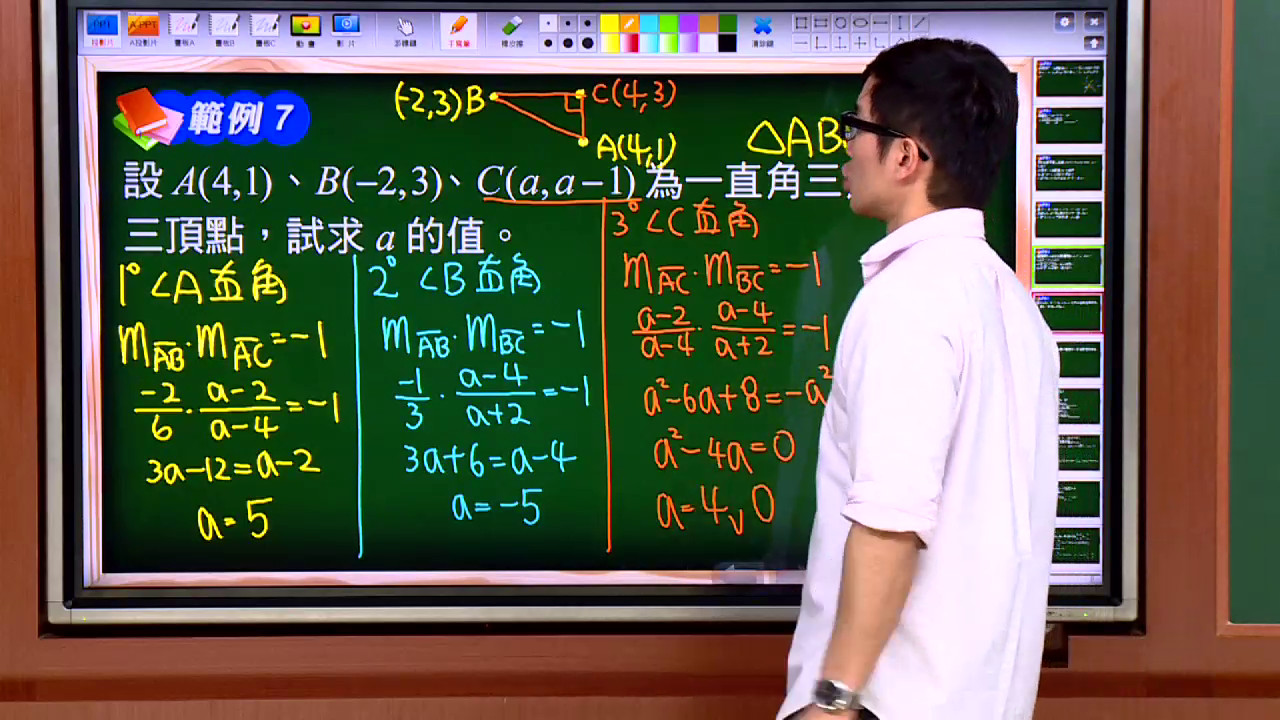 範例 7
(-2,3)B
C(4,3)
A(4,1)
△AB
設 A(4,1)、B(−2,3)、C(a,a−1) 為一直角三
三頂點，試求 a 的值。
1° ∠A 直角
m_AB · m_AC = -1
-2/6 · (a-2)/(a-4) = -1
3a-12=a-2
a=5
2° ∠B 直角
m_AB · m_BC = -1
-1/3 · (a-4)/(a+2) = -1
3a+6=a-4
a=-5
3° ∠C 直角
m_AC · m_BC = -1
(a-2)/(a-4) · (a-4)/(a+2) = -1
a²-6a+8=-a²
a²-4a=0
a=4∨0